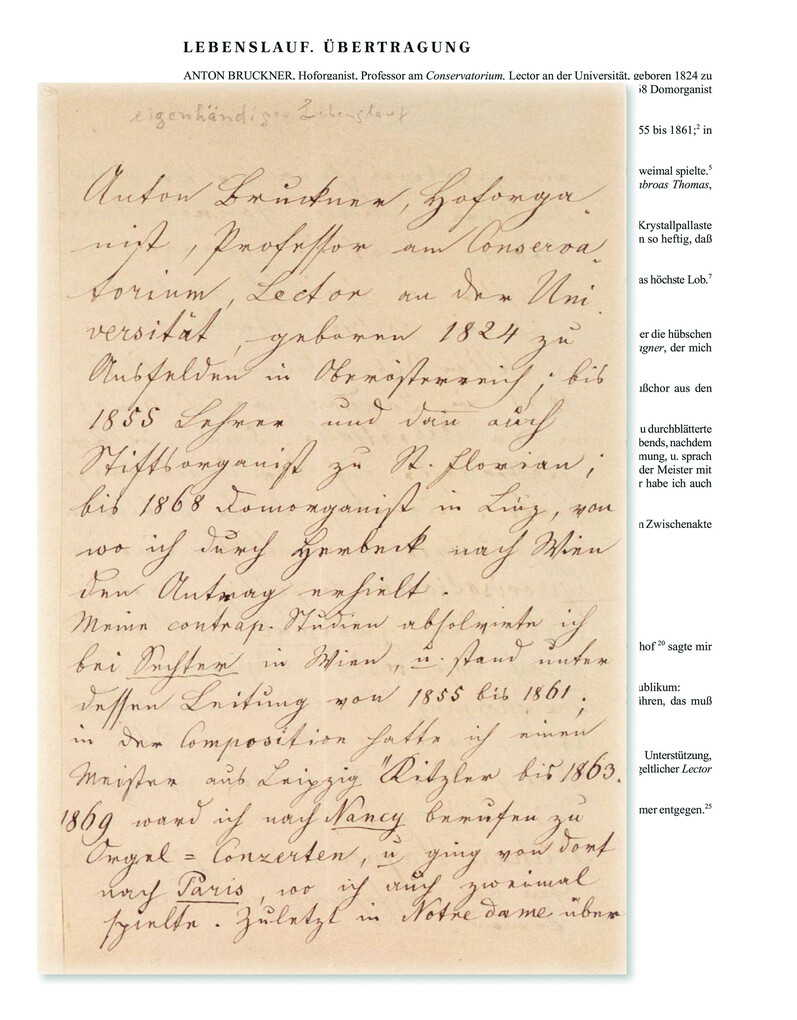 LEBENSLAUF. ÜBERTRAGUNG
ANTON BRUCKNER, Hoforganist, Professor am Conservatorium, Lector an der Universität, geboren 1824 zu
68 Domorganist
55 bis 1861;² in
weimal spielte.⁵
broas Thomas,
Krystallpallaste
n so heftig, daß
as höchste Lob.⁷
er die hübschen
gner, der mich
ßchor aus den
u durchblätterte
bends, nachdem
mung, u. sprach
der Meister mit
r habe ich auch
n Zwischenakte
hof ²⁰ sagte mir
ublikum:
ühren, das muß
Unterstützung,
geltlicher Lector
mer entgegen.²⁵
eigenhändiger Lebenslauf
Anton Bruckner, Hoforga
nist, Professor am Conserva
torium, Lector an der Uni
versität, geboren 1824 zu
Ansfelden in Oberösterreich; bis
1855 Lehrer und dan̄ auch
Stiftsorganist zu St. Florian;
bis 1868 Domorganist in Linz, von
wo ich durch Herbeck nach Wien
den Antrag erhielt.
Meine contrap. Studien absolvirte ich
bei Sechter in Wien, u. stand unter
dessen Leitung von 1855 bis 1861;
in der Composition hatte ich einen
Meister aus Leipzig "Kitzler bis 1863.
1869 ward ich nach Nancy berufen zu
Orgel=Conzerten, u ging von dort
nach Paris, wo ich auch zweimal
spielte. Zuletzt in Notre dame über